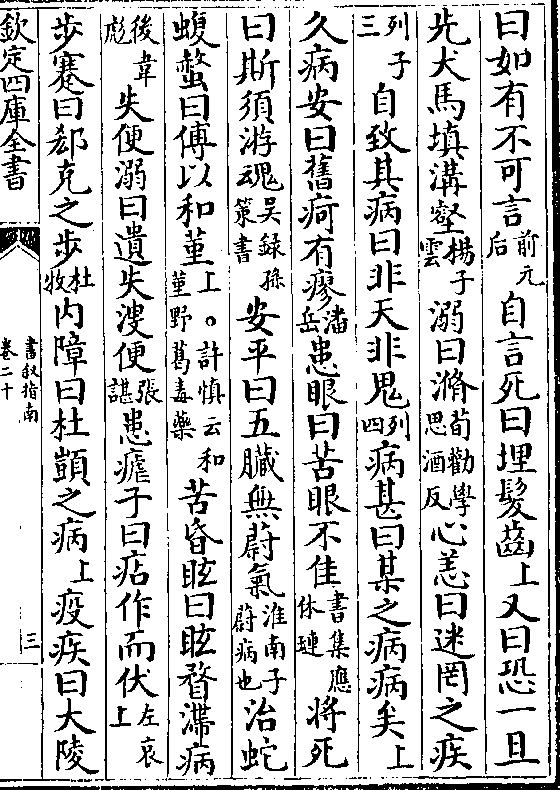 曰如有不可言前元后自言死曰埋髮齒上又曰恐一旦
先犬馬填溝壑楊子雲溺曰滫荀勸學思酒反心恙曰迷罔之疾
列子三自致其病曰非天非鬼列四病甚曰某之病病矣上
久病安曰舊疴有瘳潘岳患眼曰苦眼不佳書集應休璉將死
曰斯須游魂吳録孫策書安平曰五臟無蔚氣淮南子蔚病也治蛇
蝮螫曰傅以和堇上。許慎云和堇野葛毒藥苦昏眩曰眩瞀滯病
後韋彪失便溺曰遺失溲便張諶患瘧子曰痁作而伏左哀上
步蹇曰郄克之步杜牧内障曰杜顗之病上疫疾曰大陵
欽定四庫全書
書叙指南
卷二十
三